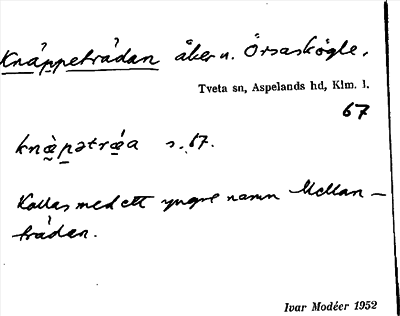 Knäppeträdan åker u. Örsaskögle.
Tveta sn, Aspelands hd, Klm. l.
67
knæ̀pətrǽa s. 67.
Kallas med ett yngre namn Mellan-
trädan.
Ivar Modéer 1952